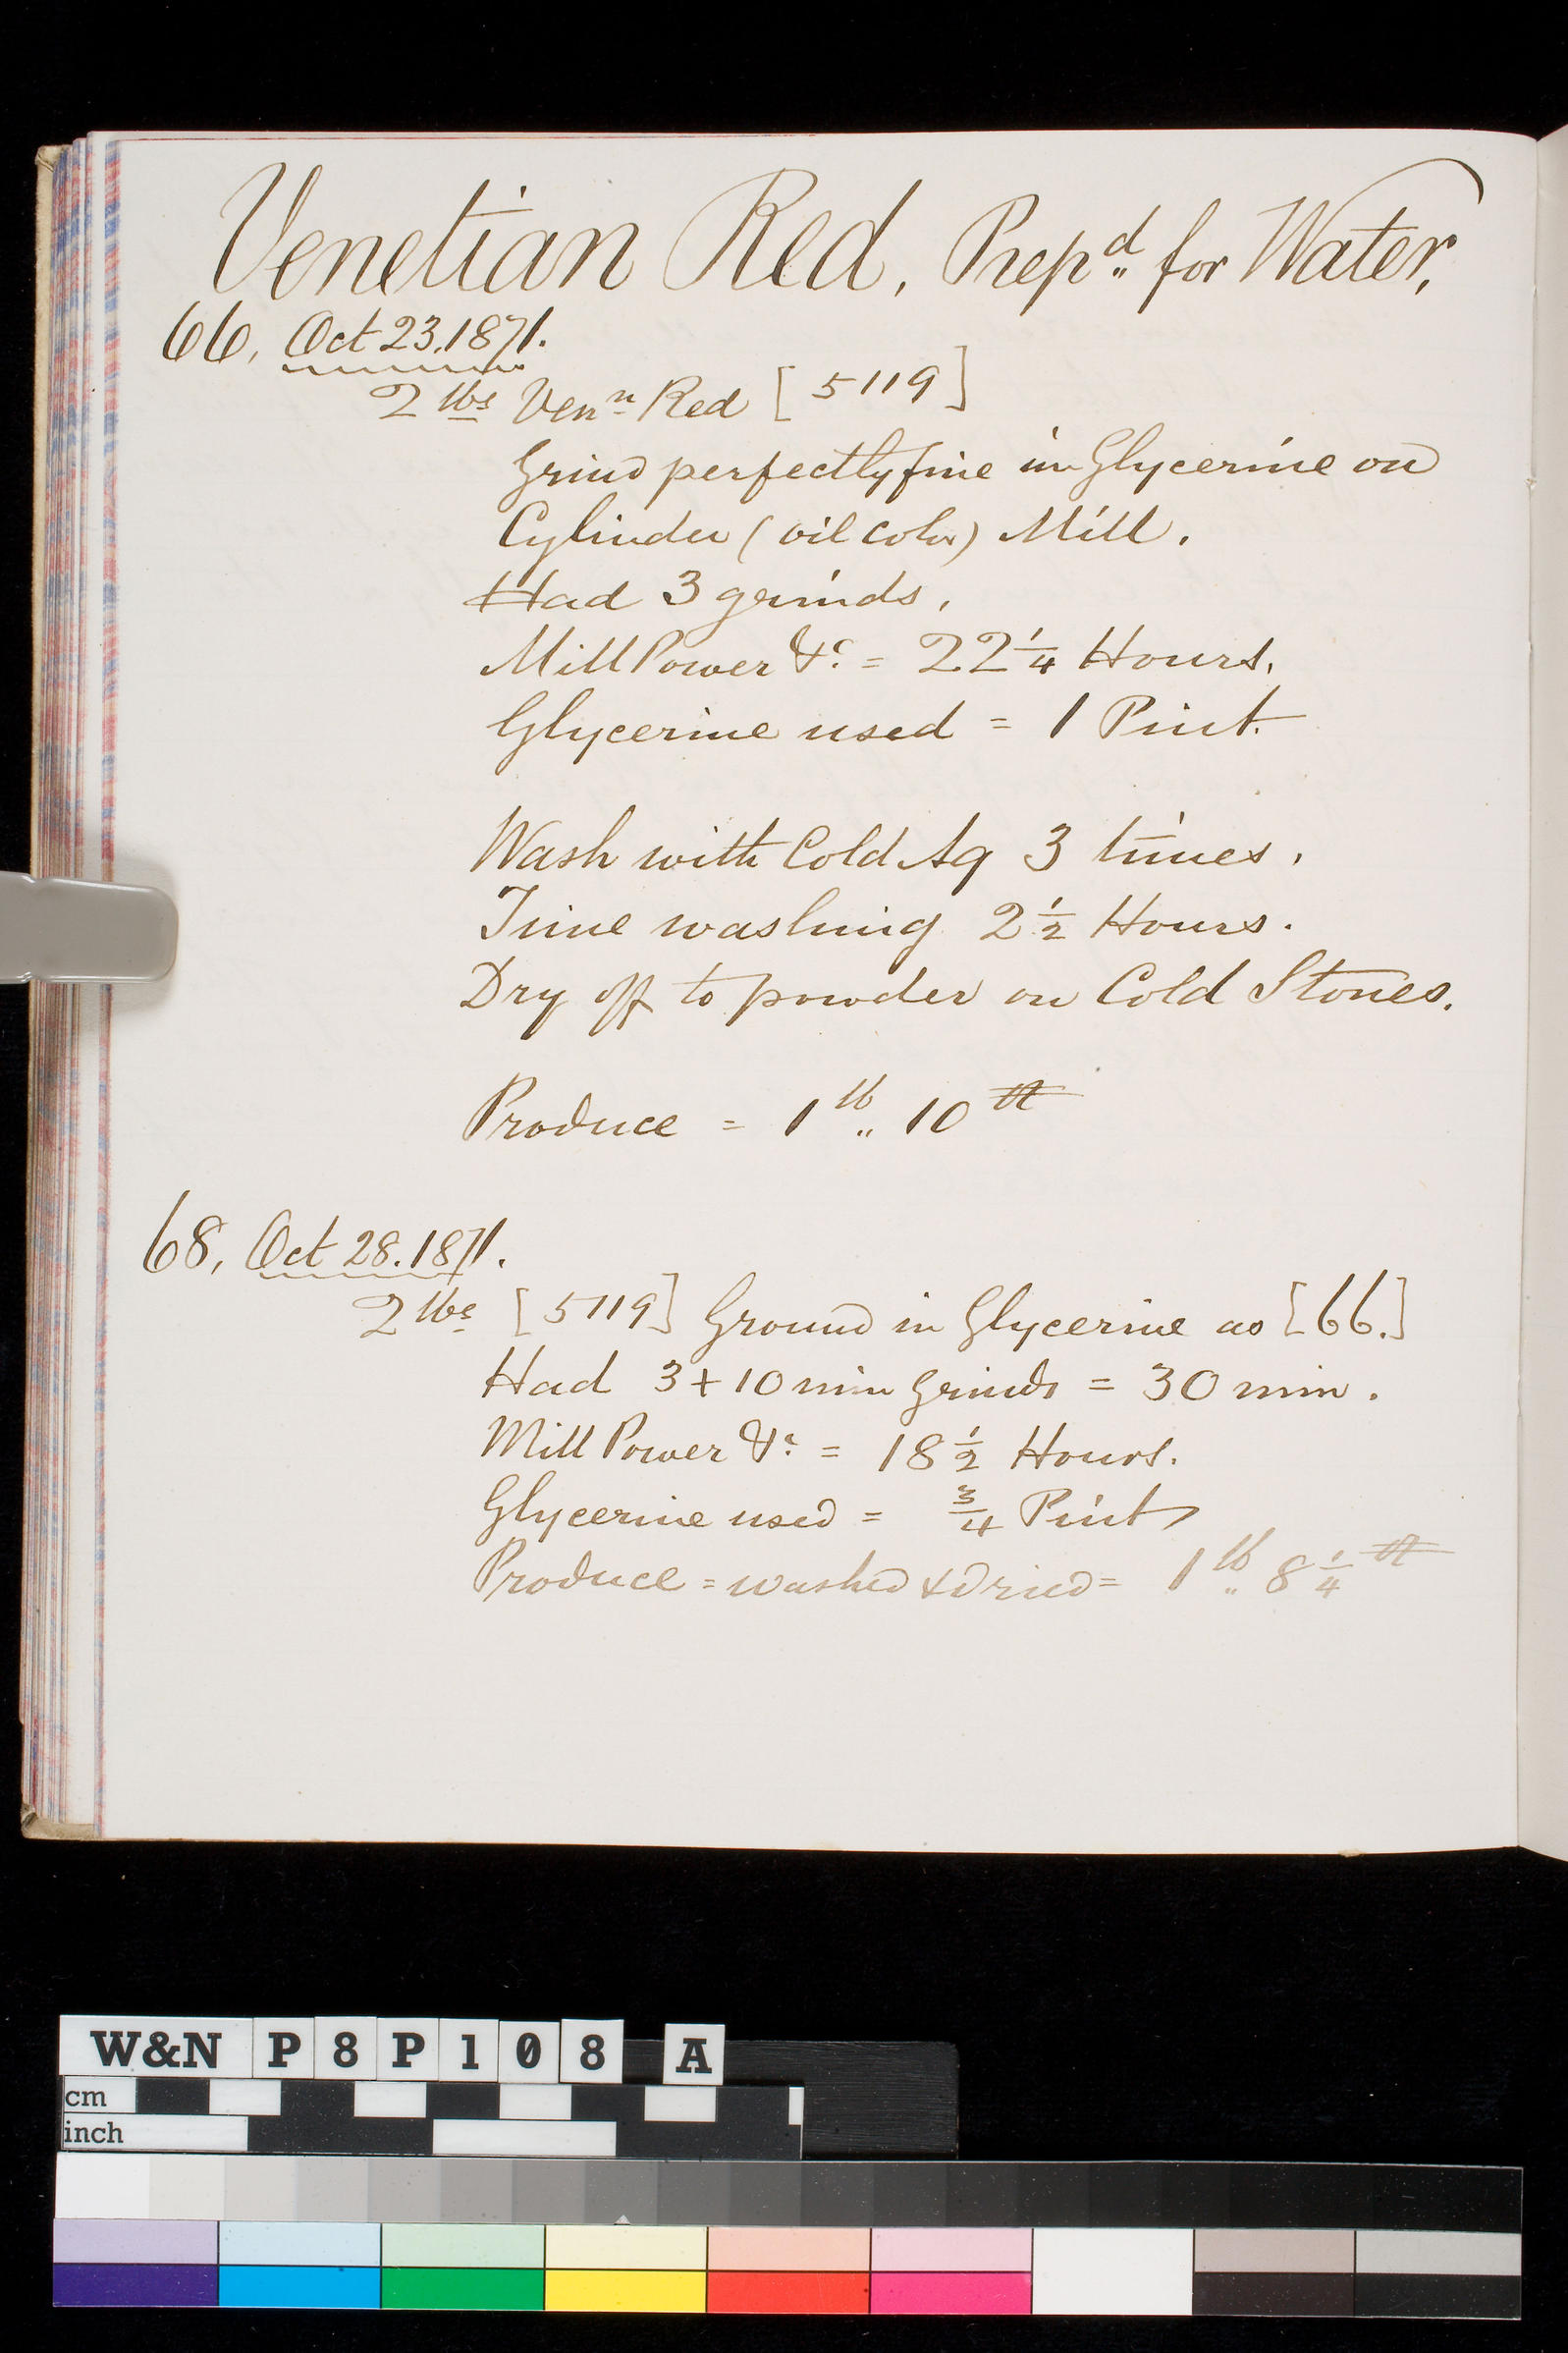 Venetian Red, Prepd. for Water,
66, Oct 23. 1871.
2 lbs Venn Red [5119]
Grind perfectly fine in Glycerine on
Cylinder (oil color) Mill.
Had 3 grinds,
Mill Power &c = 22 1/4 Hours.
Glycerine used = 1 Pint.
Wash with Cold Aq 3 times.
Time washing 2 1/2 Hours.
Dry off to powder on Cold Stones.
Produce = 1 lb 10
68, Oct 28. 1871.
2 lbs [5119] Ground in Glycerine as [66.]
Had 3 + 10 min Grinds = 30 min.
Mill Power &c = 18 1/2 Hours.
Glycerine used = 3/4 Pint
Produce = washed & dried = 1 lb 8 1/4
W&N P8P108 A
cm
inch